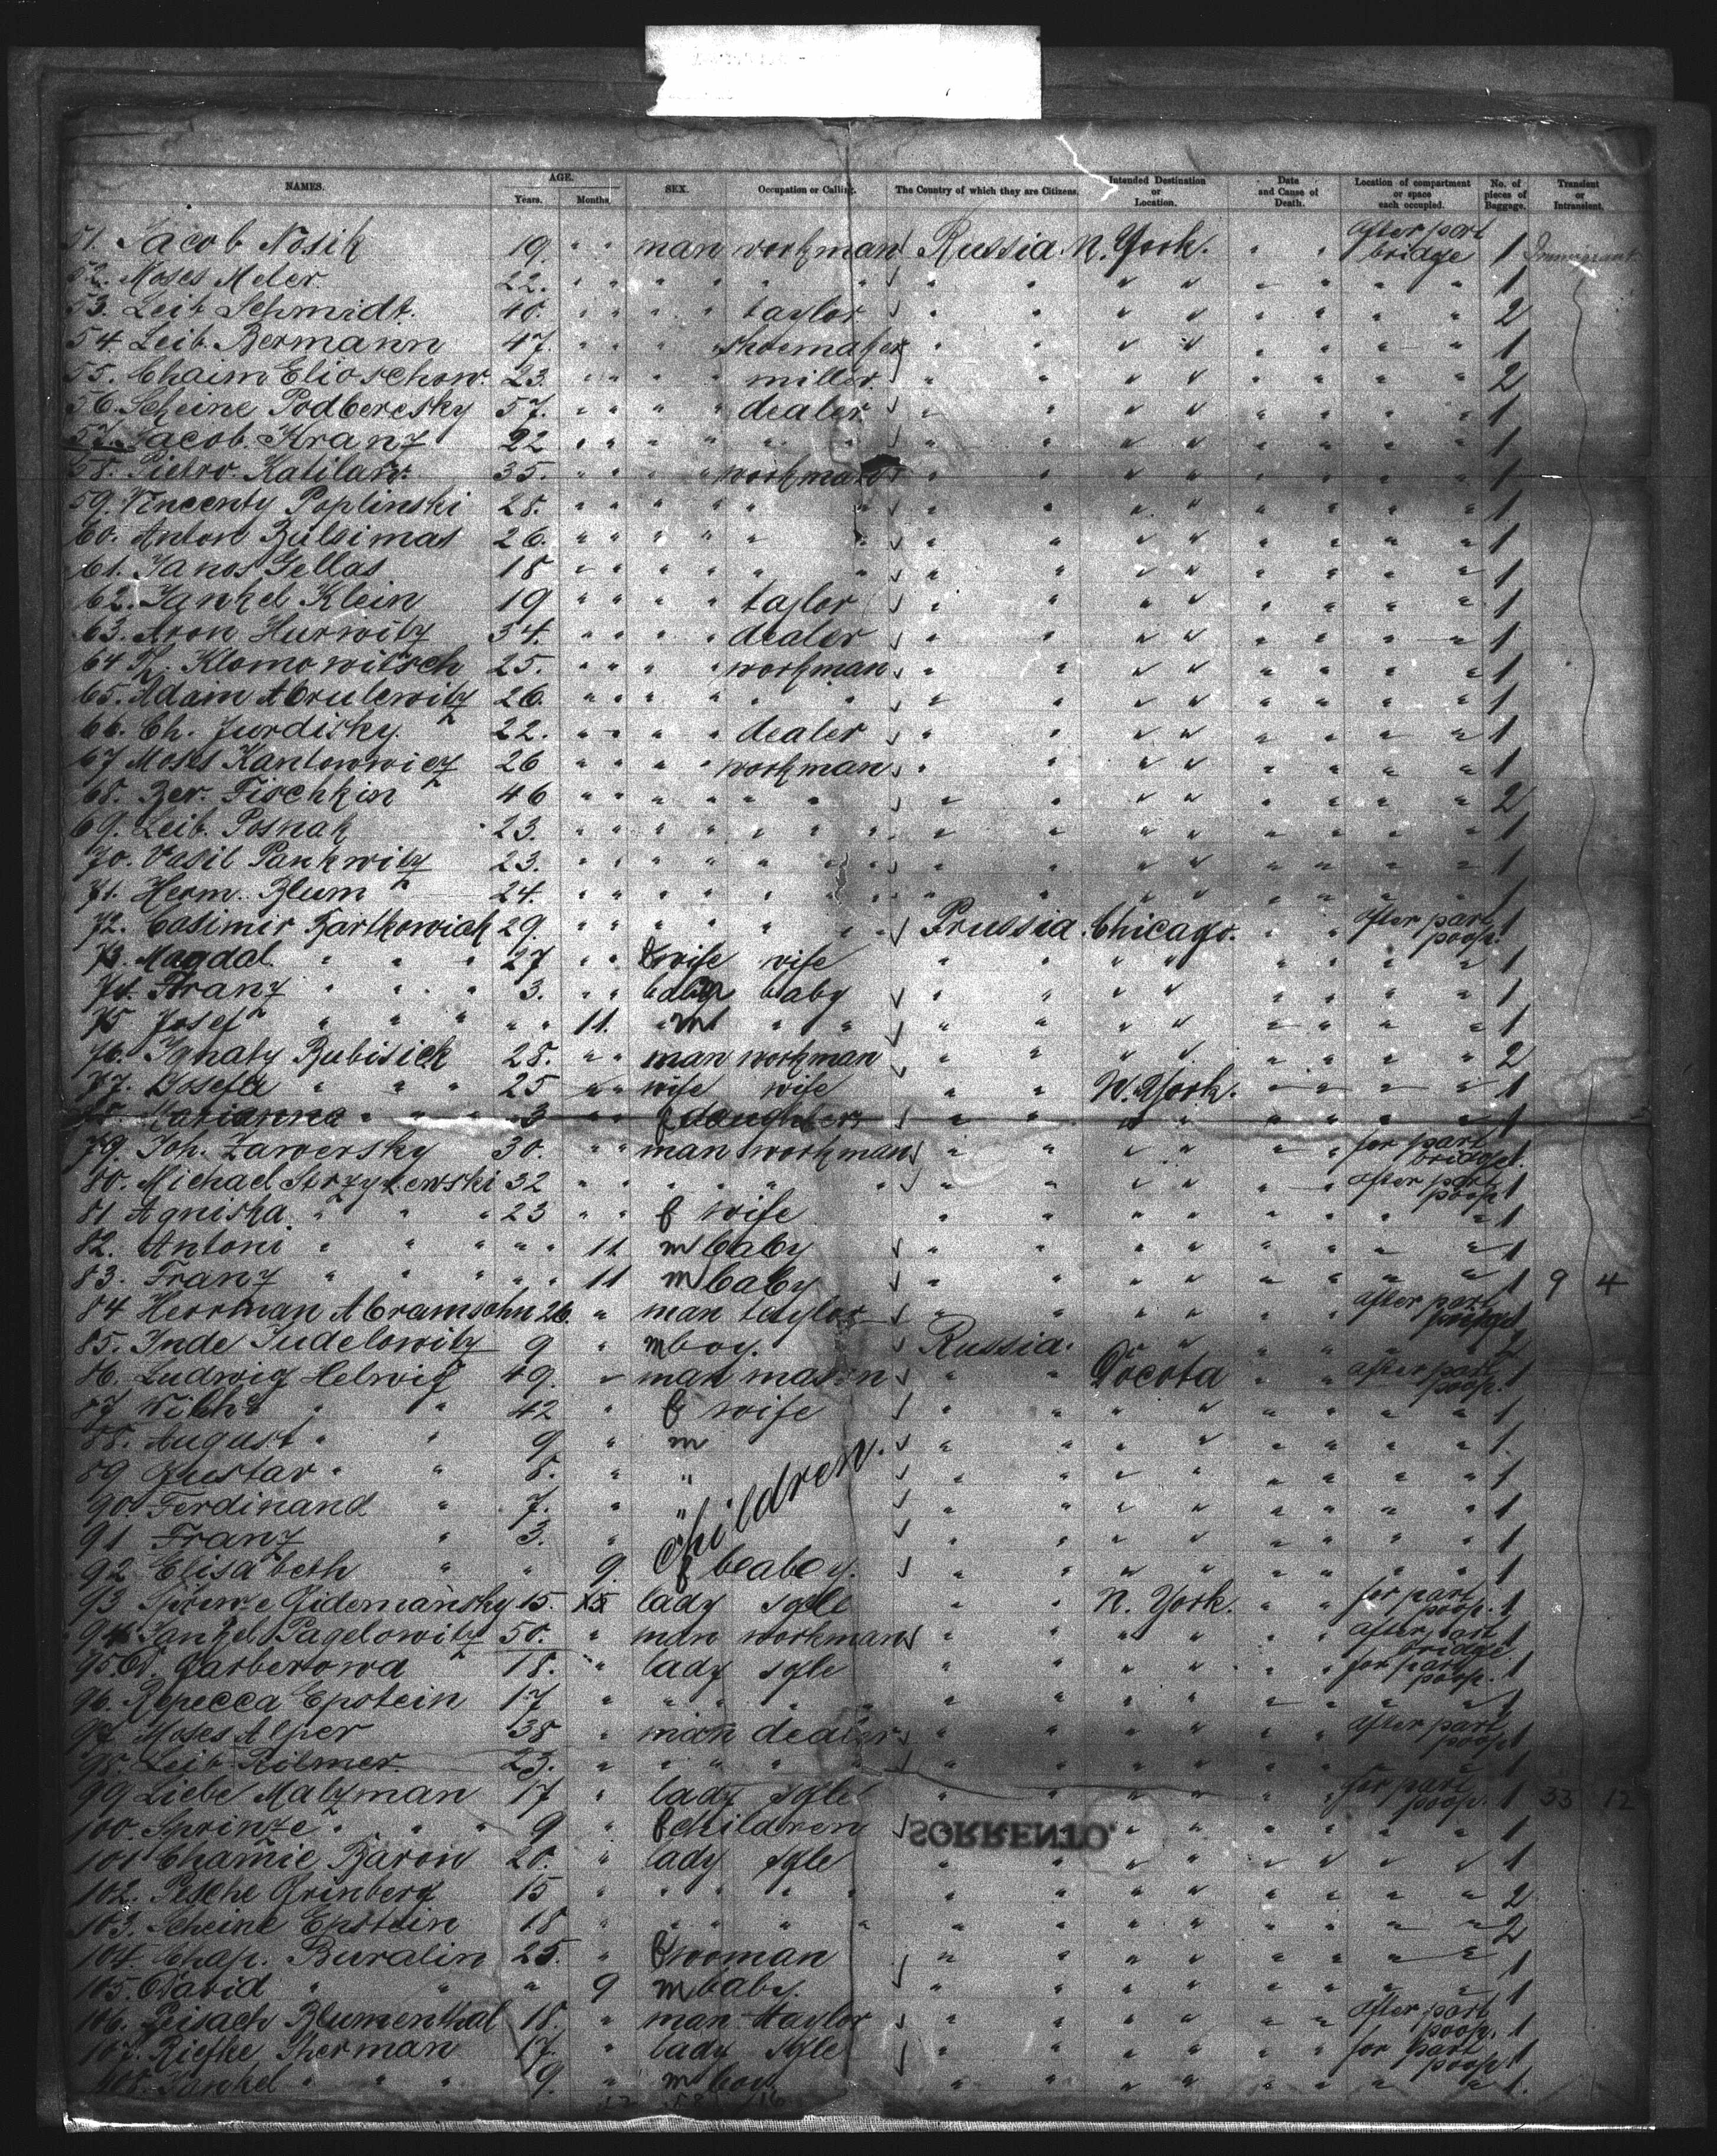 NAMES. AGE. Years. Months. SEX. Occupation or Calling. The Country of which they are Citizens. Intended Destination or Location. Date and Cause of Death. Location of compartment or space each occupied. No. of pieces of Baggage. Transient or Intransient.
51. Jacob Nosik 19. " " man workman Russia. N. York. " " After part bridge 1 Immigrant
52. Moses Meler. 22. " " " " " " " " " " 1
53. Leib Schmidt. 40. " " " taylor " " " " " " 2
54. Leib. Bermann 47. " " " shoemaker " " " " " " 1
55. Chaim Elioschow. 23. " " " miller. " " " " " " 2
56. Scheine Podberesky 57. " " " dealer " " " " " " 1
57. Jacob. Kranz 22 " " " " " " " " " " 1
58. Pietro. Katilaw. 35. " " " workman " " " " " " 1
59. Vincenty Poplinski 28. " " " " " " " " " " 1
60. Anton Bulsimas 26. " " " " " " " " " " 1
61. Janos Gellas 18 " " " " " " " " " " 1
62. Jankel Klein 19 " " " taylor " " " " " " 1
63. Aron Hurwitz 34. " " " dealer " " " " " " 1
64 K. Klomowitsch 25. " " " workman " " " " " " 1
65. Adam Abrulewitz 26. " " " " " " " " " " 1
66. Ch. Jurdisky. 22. " " " dealer " " " " " " 1
67 Moses Kantowwicz 26 " " " workman " " " " " " 1
68. Ber. Fischkin 46 " " " " " " " " " " 2
69. Leib. Posnak 23. " " " " " " " " " " 1
70. Vasil Pankwitz 23. " " " " " " " " " " 1
71. Herm. Blum 24. " " " " " " " " " " 1
72. Casimir Bartkowiak 29. " " " " Prussia. Chicago. " " after part poop. 1
73. Magdal. " " 27 " " wife wife " " " " " " 1
74. Franz " " 3. " " baby baby " " " " " " 1
75 Josef " " " 11. m " " " " " " " 1
76. Ignaty Bubisick 28. " " man workman " " " " " " 2
77. Josefa " " 25 " " wife wife " N. York. " " " " 1
78. Marianna " " 3 " " f daughter " " " " " " 1
79. Joh. Zawersky 30. " " man workman " " " " for part bridge 1.
80. Michael Strzyzewski 32 " " " " " " " " after part poop 1
81 Agniska " " 23 " " f wife " " " " " " 1
82. Antoni " " " 11 m baby " " " " " " 1
83. Franz " " " 11 m baby " " " " " " 1 9 4
84 Herrman Abramsohn 26. " man taylor " " " " after part 1
85. Inde Judelowitz 9 " m boy. Russia. " " " " " 2
86. Ludwig Helwig 49. " man mason " Docota " " after part poop. 1
87 Wilh. " " 42 " f wife " " " " " " 1
88. August " " 9 " m " " " " " " 1.
89 Gustav " " 8. " " children. " " " " " " 1
90. Ferdinand " 7. " " " " " " " " 1
91 Franz " 3. " " " " " " " " 1
92 Elisabeth " " 9. f beaby. " " " " " " 1
93 Sprinze Gidemansky 15. lady sgle " N. York. " " for part poop. 1
94 Jankel Pagelowitz 50. " man workman " " " " after part bridge 1
95 Garberowa 18. " lady sgle " " " " for part poop. 1
96. Rebecca Epstein 17 " " " " " " " " " 1
97 Moses Alper 38 " man dealer " " " " after part poop 1
98. Leib Kilmer. 23. " " " " " " " " " 1
99 Liebe Malzman 17 " lady sgle " " " " for part poop. 1 33 12
100. Sprinze " " 9 " f children SORRENTO. " " " " " 1
101 Chamie Baron 20. " lady sgle " " " " " " 1
102. Pesche Grinberg 15 " " " " " " " " " 2
103. Scheine Epstein 18 " " " " " " " " " 2
104. Chap. Buralin 25. " f wooman " " " " " " 1
105. David " " " 9 m baby. " " " " " " 1
106. Peisach Blumenthal 18. " man taylor " " " " after part poop. 1
107. Riefke Sherman 17. " lady sgle " " " " for part poop 1
108. Jankel " " 9. " m boy " " " " " " 1.